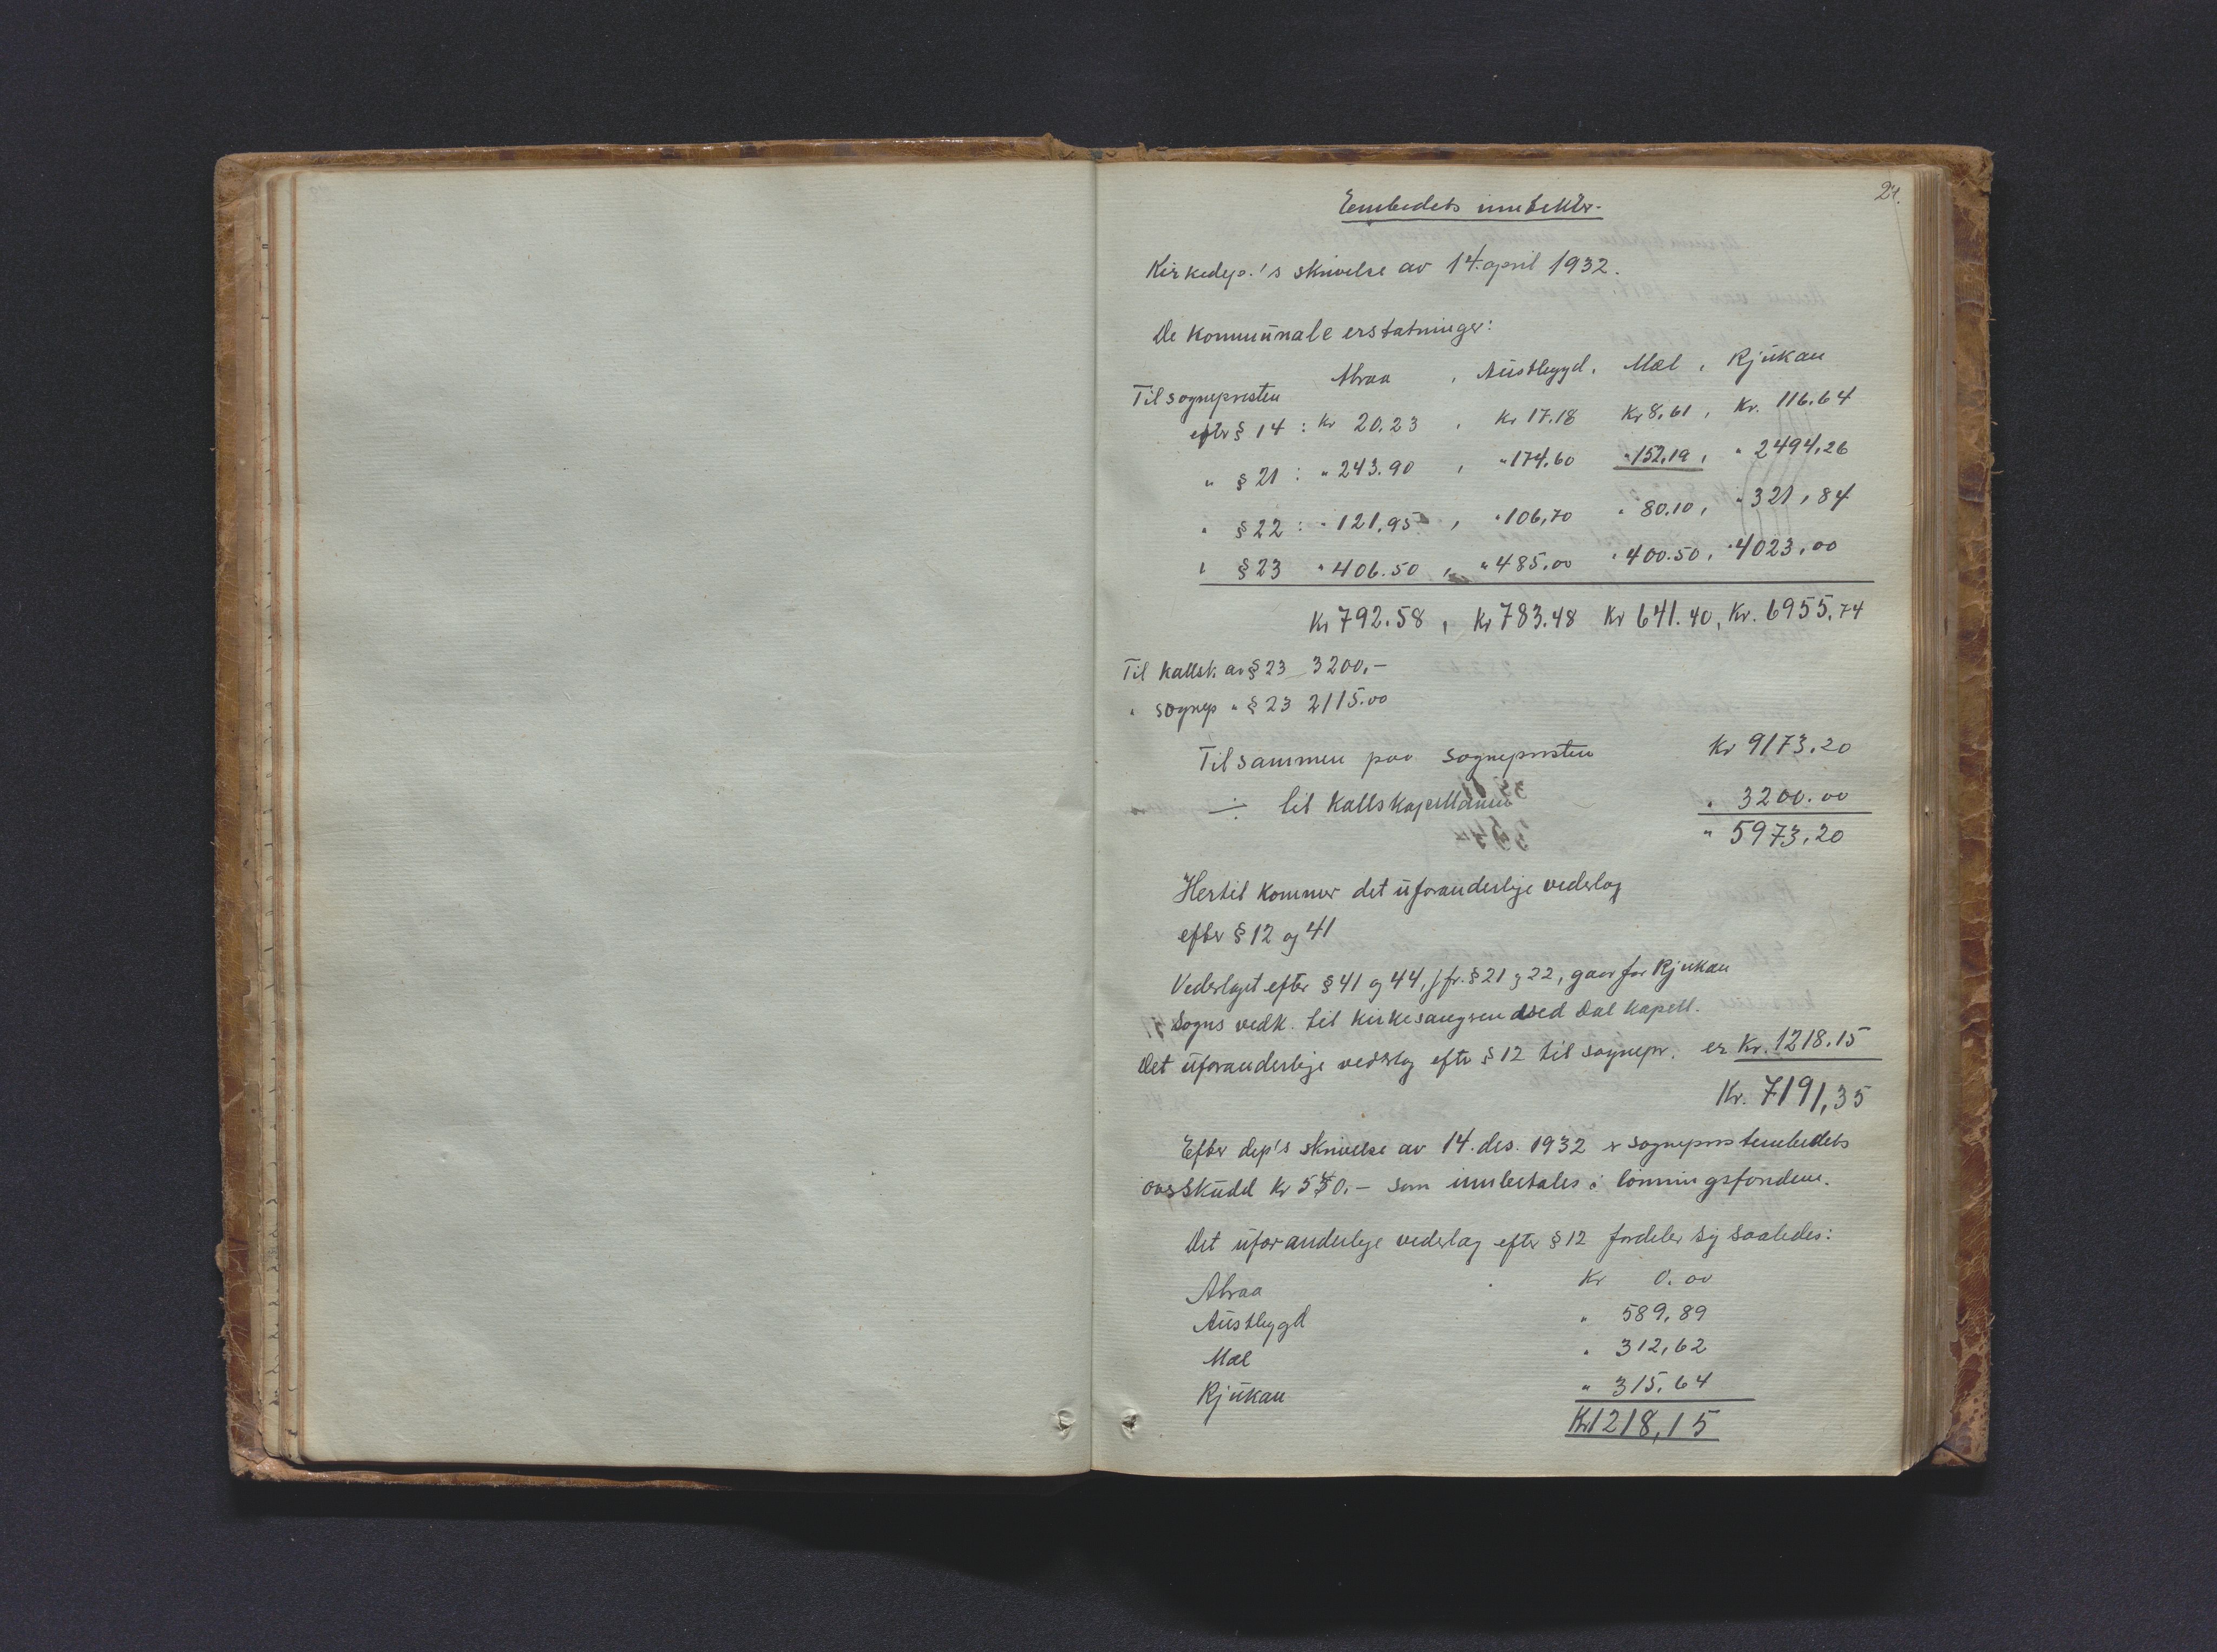 21.
Embedets inntekter.
Kirkedep.'s skrivelse av 14. april 1932.
De kommunale erstatninger:
Atraa , Austbygd , Mæl , Rjukan
Til sognepresten
efter § 14 : Kr 20.23 , Kr 17.18 Kr 8,61 , Kr. 116.64
" § 21 : " 243.90 , " 174,60 " 152,19 , " 2494,26
" § 22 : " 121,95 , " 106,70 " 80.10 , " 321,84
" § 23 " 406.50 , " 485,00 " 400.50 , " 4023,00
Kr 792.58 , Kr 783.48 Kr 641.40 , Kr. 6955,74
Til kallsk. av § 23 3200,-
" sognep " § 23 2115.00
Tilsammen paa sognepresten Kr 9173,20
÷ til kallskapellanen " 3200.00
" 5973,20
Hertil kommer det uforanderlige vederlag
efter § 12 og 41
Vederlaget efter § 41 og 44, jfr. § 21 og 22, gaar for Rjukan
Sogns vedk. til kirkesangeren ved Dal kapell.
Det uforanderlige vederlag efter § 12 til sognepr. er Kr. 1218.15
Kr. 7191,35
Efter dep's skrivelse av 14. des. 1932 er sogneprestembedets
overskudd Kr 540.- som innbetales i lønningsfondene.
Det uforanderlige vederlag efter § 12 fordeler sig saaledes:
Atraa Kr 0.00
Austbygd " 589,89
Mæl " 312,62
Rjukan " 315,64
Kr 1218,15